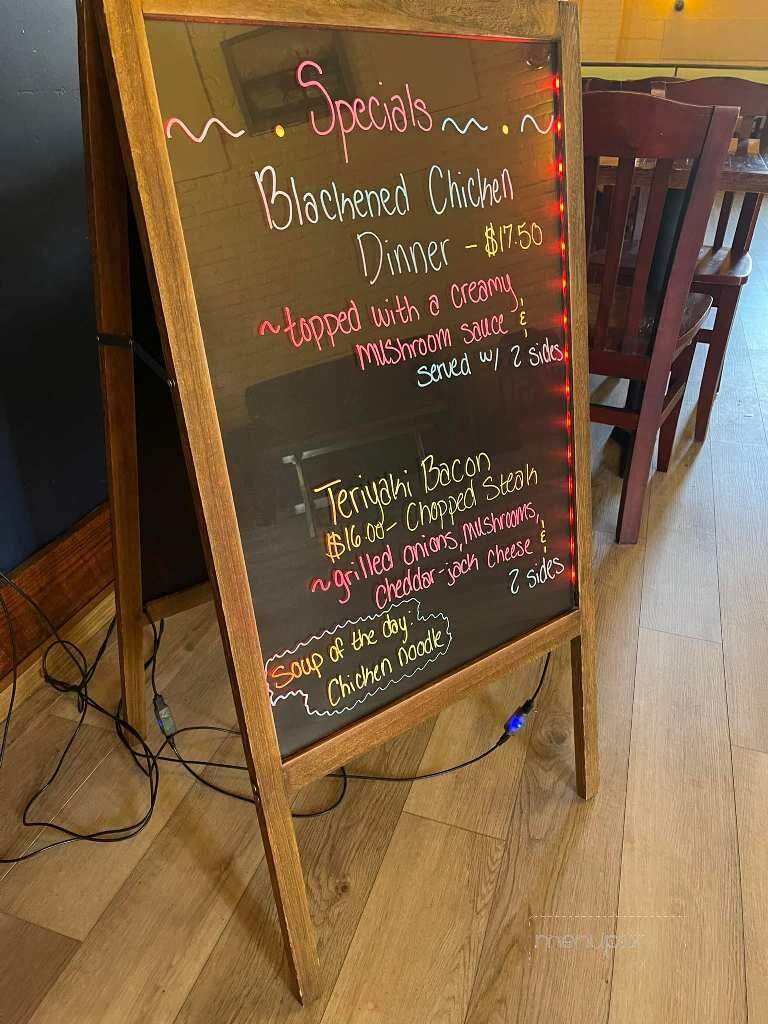 ~ • Specials ~ • ~
Blackened Chicken
Dinner - $17.50
~topped with a creamy
mushroom sauce &
served w/ 2 sides
Teriyaki Bacon
$16.00- Chopped Steak
~grilled onions, mushrooms,
cheddar-jack cheese &
2 sides
Soup of the day:
Chicken noodle
menupix